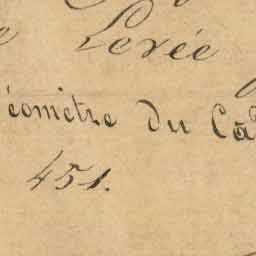 e Levée
éomètre du Ca
451.